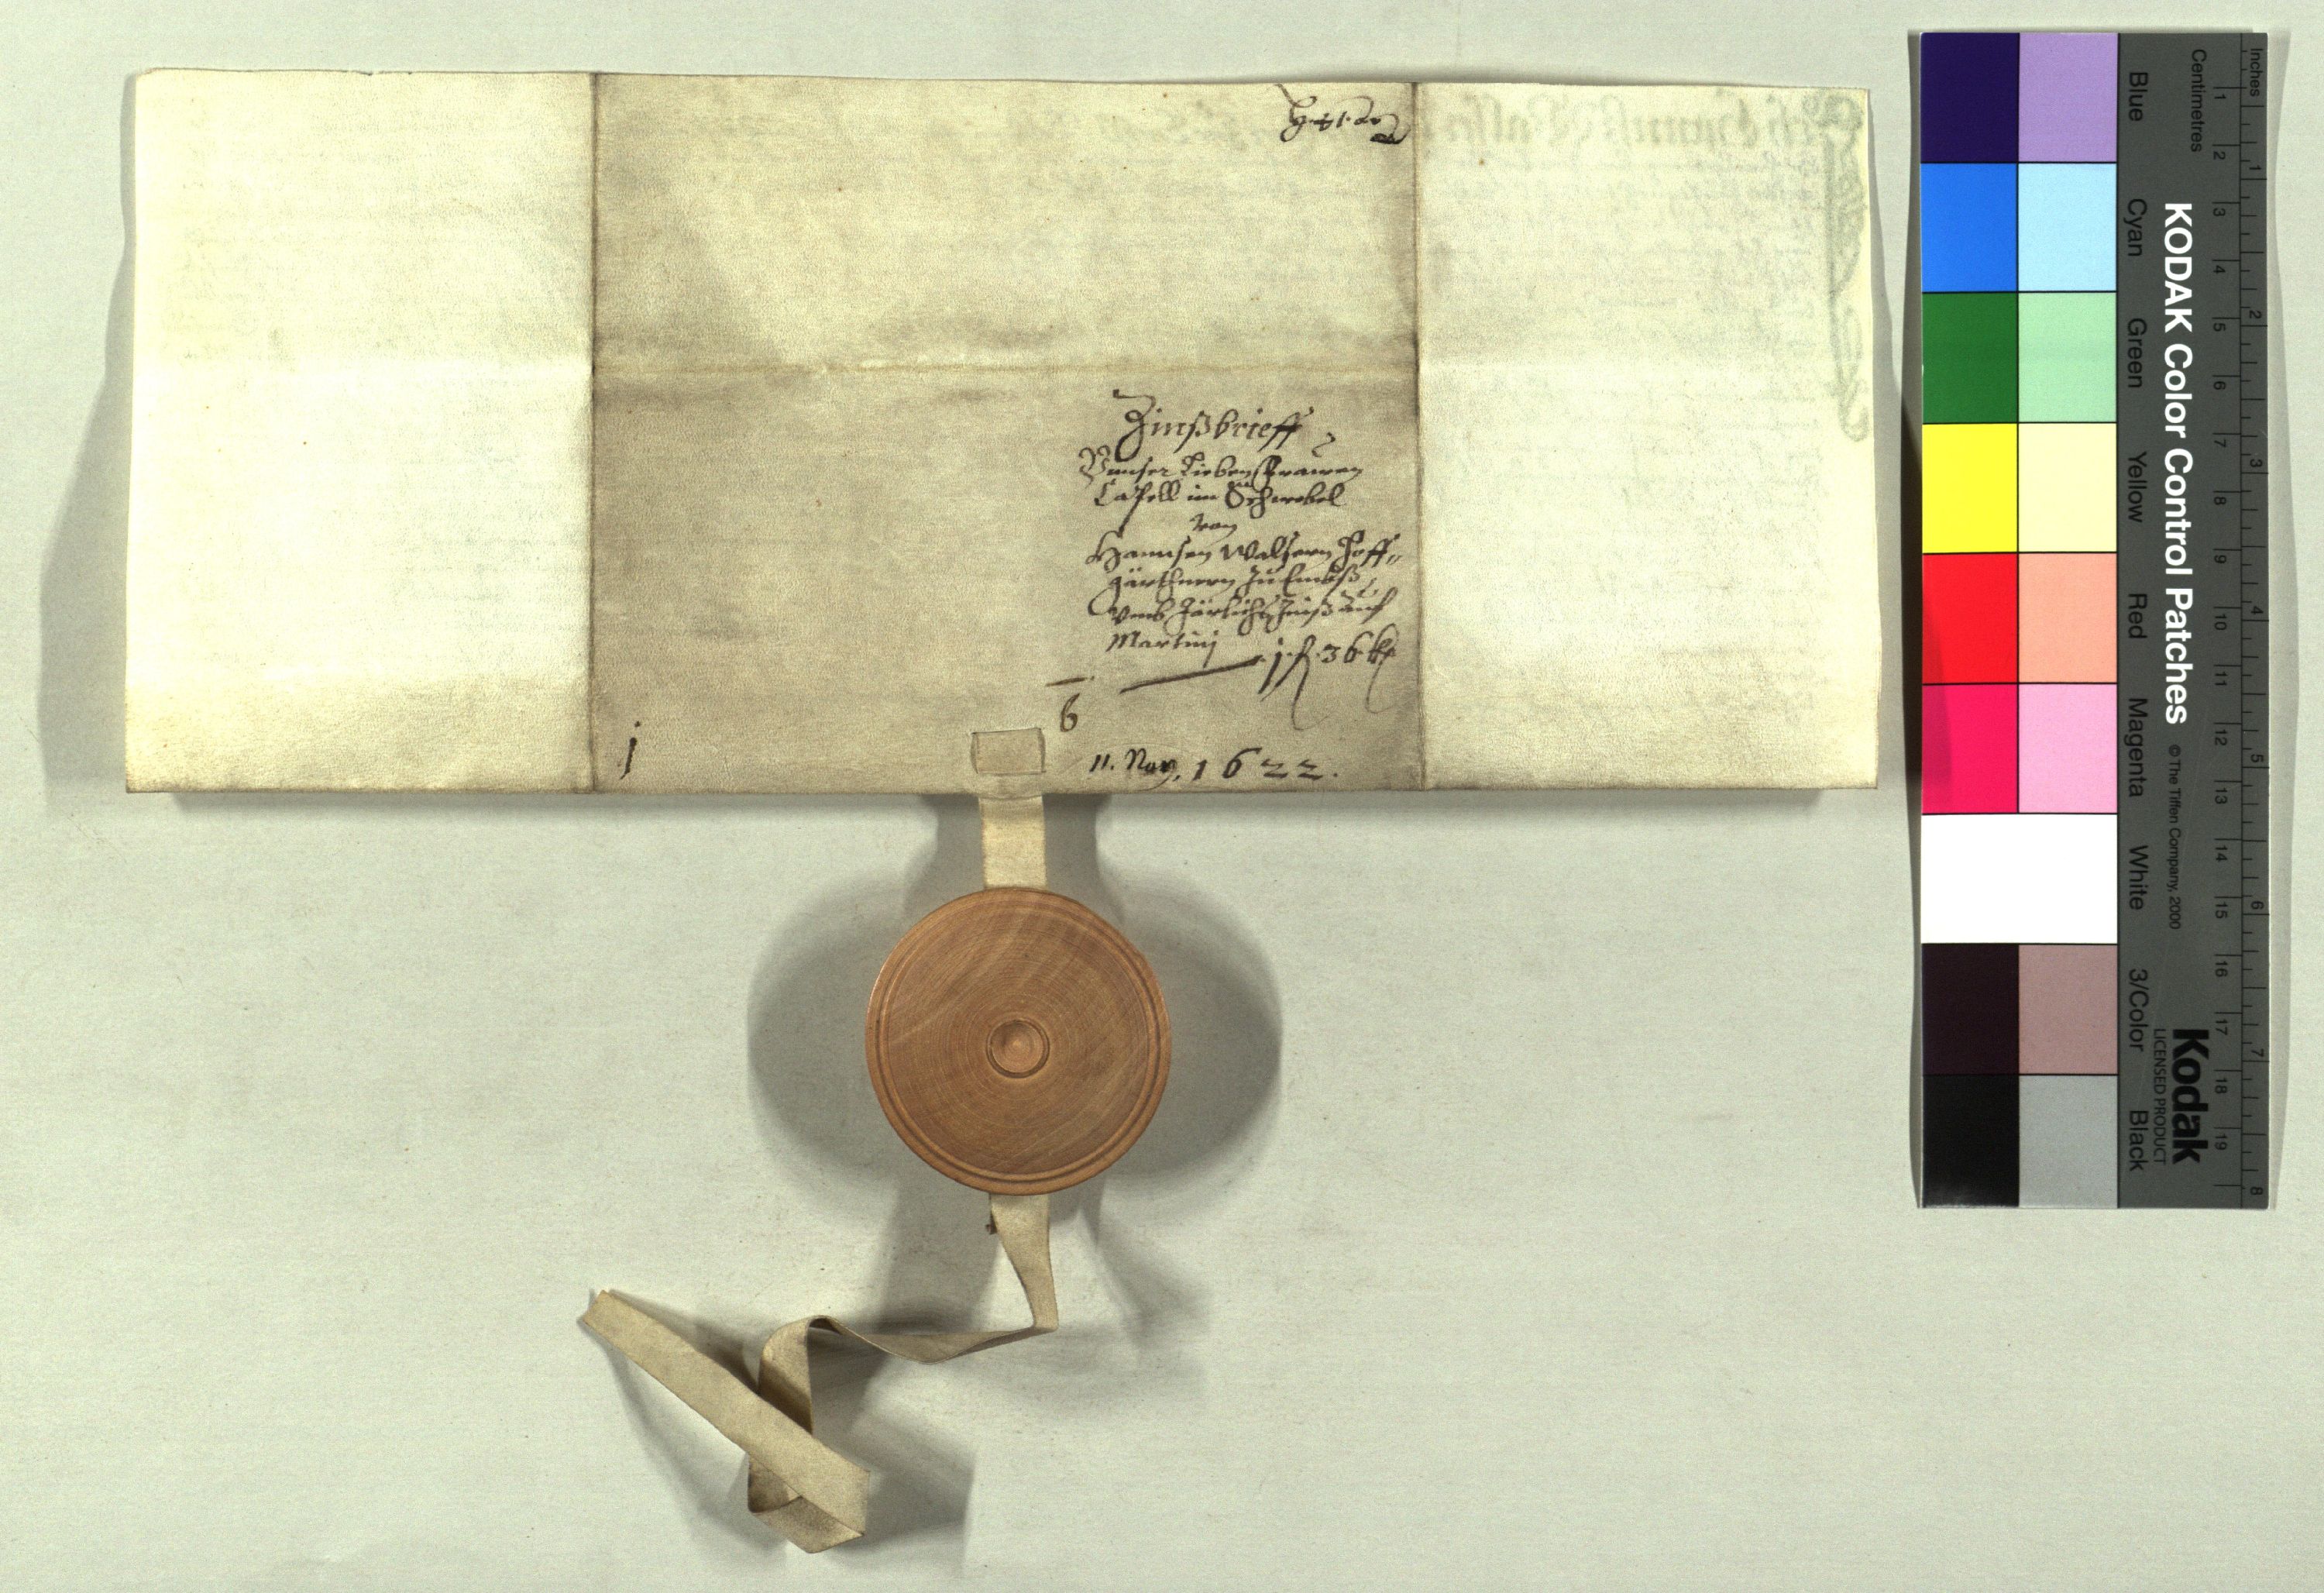 Zinßbrieff
Vnnser Lieben Frawen
Capell im Schwebel
von
Hannsen Walsern Hoff-
gärthnern zu Embß,
vmb Järlichs Zinß auf
Martinj
j. fl. 36 kr
6
j
11. Nov. 1622.
KODAK Color Control Patches
© The Tiffen Company, 2000
Kodak
LICENSED PRODUCT
Inches
Centimetres
Blue
Cyan
Green
Yellow
Red
Magenta
White
3/Color
Black
1 2 3 4 5 6 7 8 9 10 11 12 13 14 15 16 17 18 19
1 2 3 4 5 6 7 8